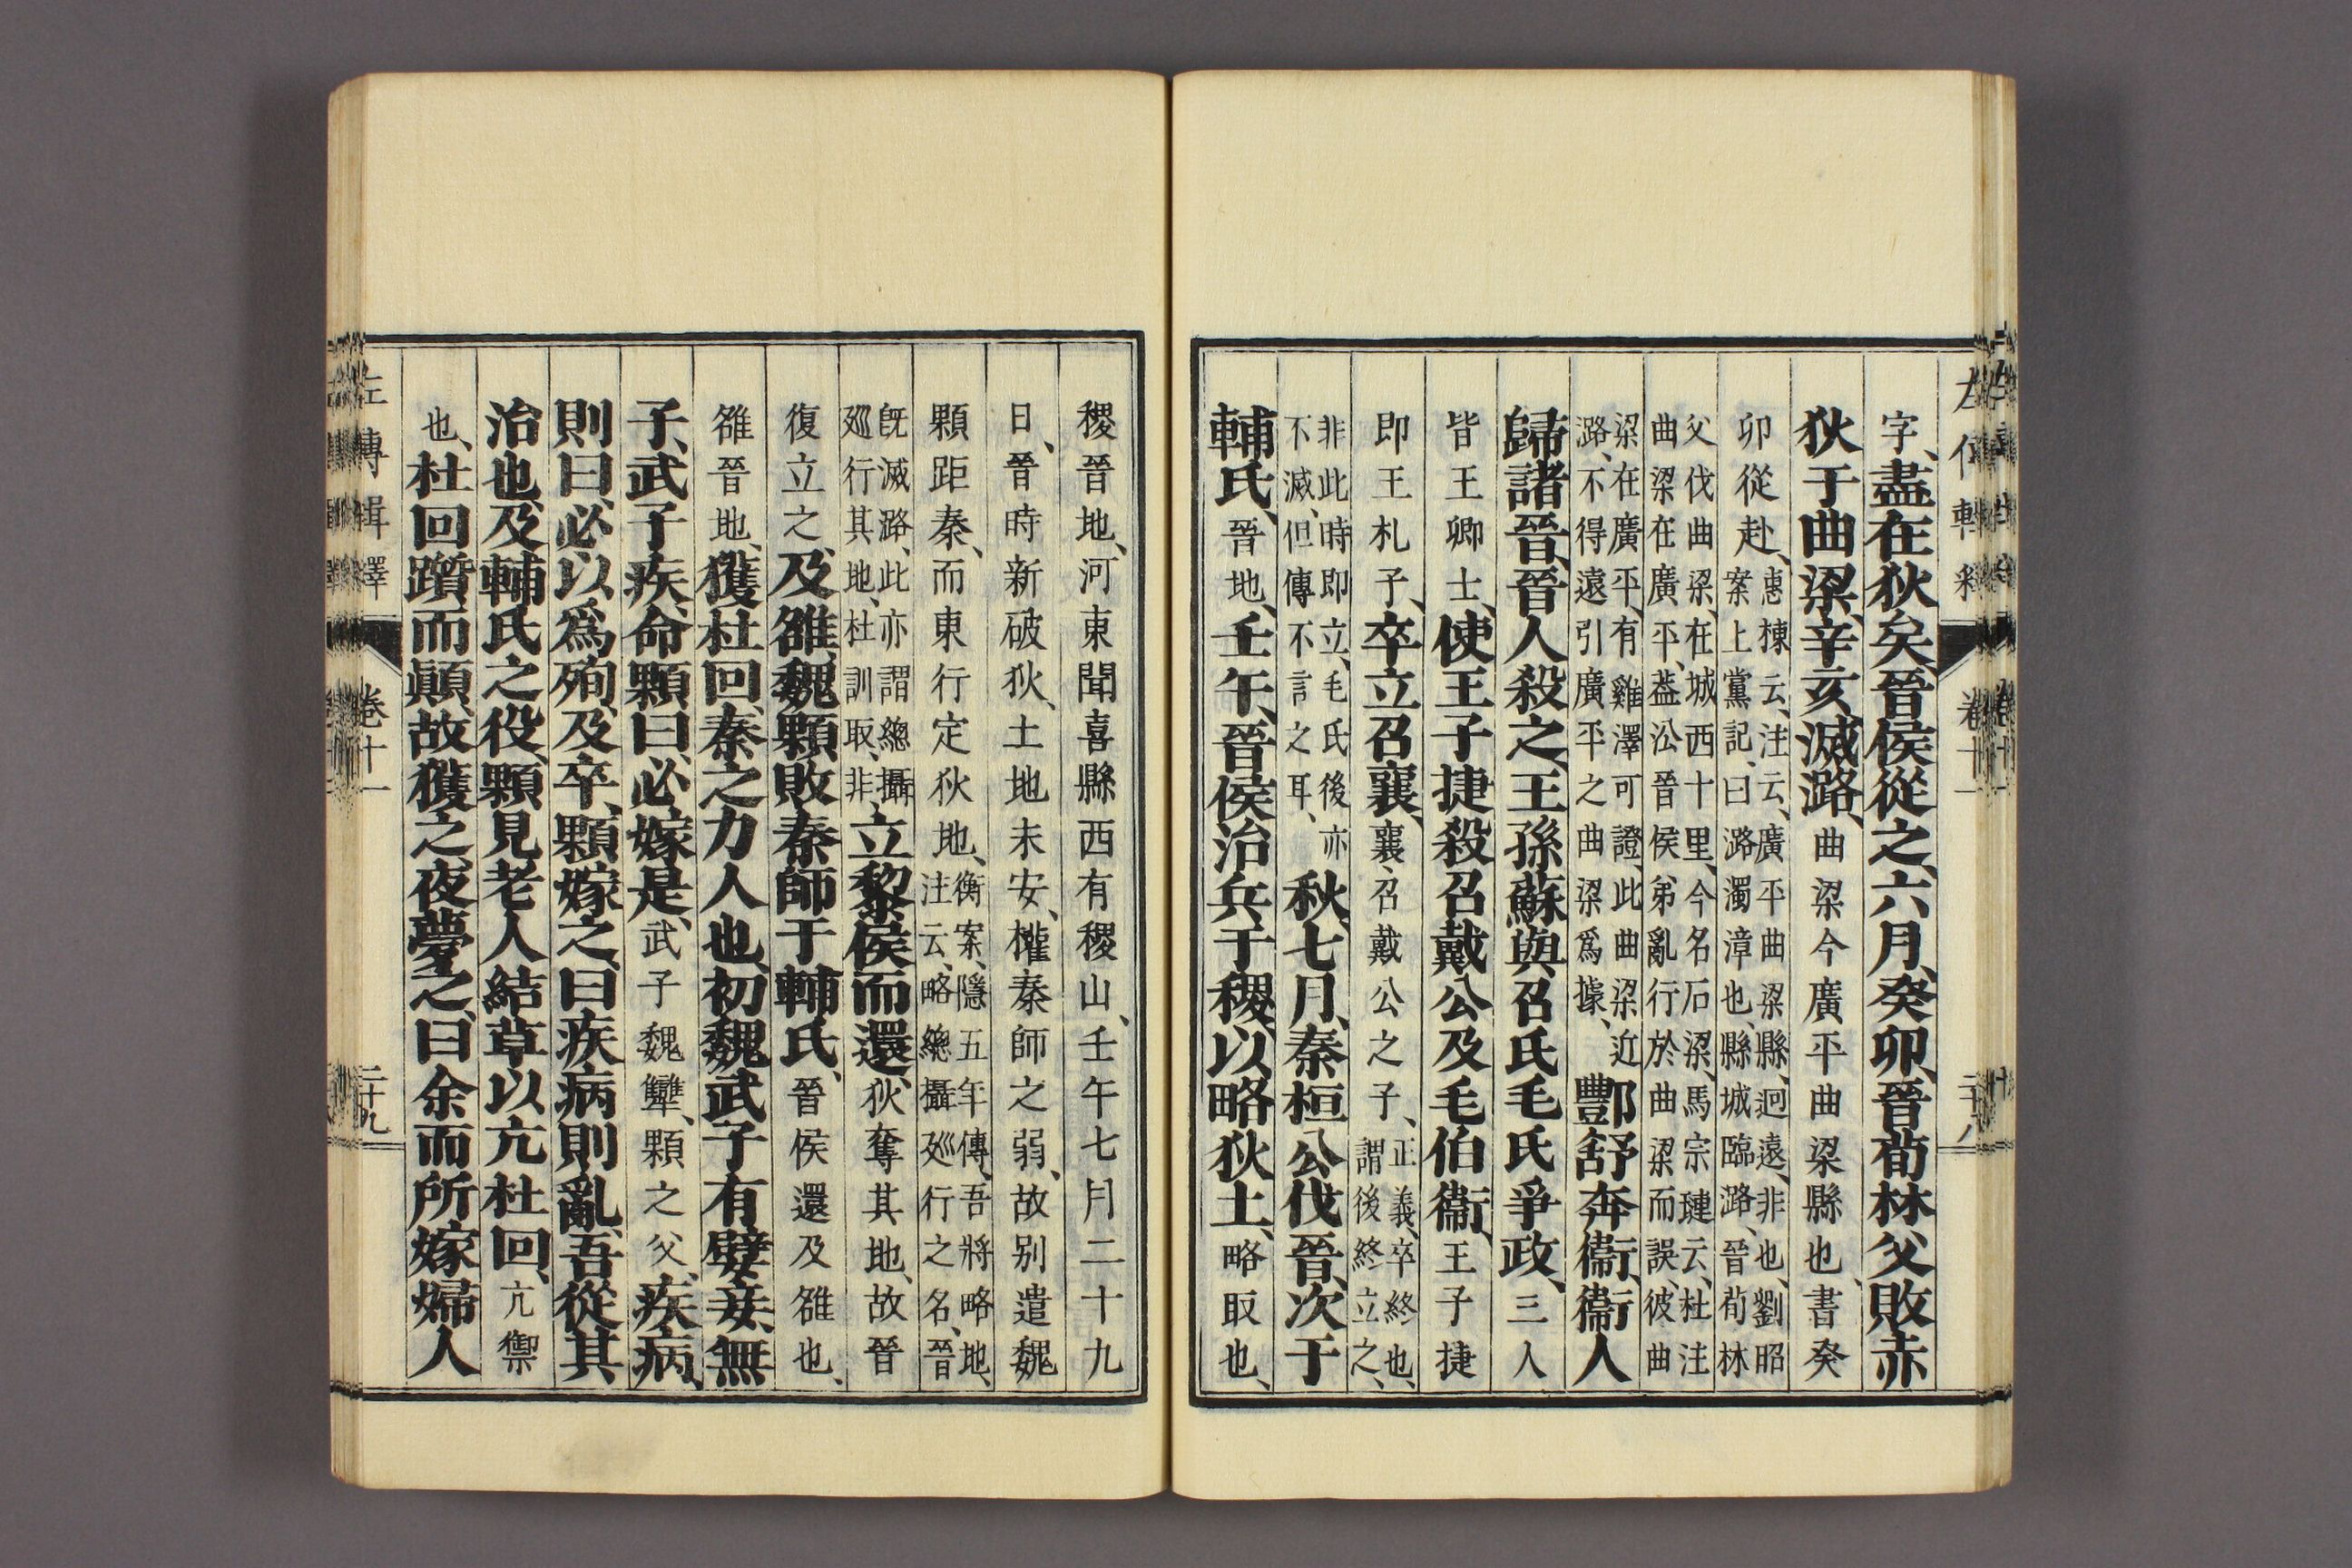 左傳輯釋 卷十一 二十八
字、盡在狄矣、晉侯從之、六月、癸卯、晉荀林父敗赤
狄于曲梁、辛亥、滅潞、曲梁今廣平曲梁縣也、書癸
卯從赴、惠棟云、注云、廣平曲梁縣、迥遠、非也、劉昭
案上黨記、曰潞濁漳也、縣城臨潞、晉荀林
父伐曲梁、在城西十里、今名石梁、馬宗璉云、杜注
曲梁在廣平、葢㳂晉侯弟亂行於曲梁而誤、彼曲
梁在廣平、有雞澤可證、此曲梁近
潞、不得遠引廣平之曲梁爲據、
酆舒奔衞、衞人
歸諸晉、晉人殺之、王孫蘇與召氏毛氏爭政、三人
皆王卿士、使王子捷殺召戴公及毛伯衞、王子捷
即王札子、卒立召襄、襄、召戴公之子、正義、卒終也、
謂後終立之、
非此時即立、毛氏後亦
不滅、但傳不言之耳、
秋、七月、秦桓公伐晉、次于
輔氏、晉地、壬午、晉侯治兵于稷、以略狄土、略取也、
稷晉地、河東聞喜縣西有稷山、壬午七月二十九
日、晉時新破狄、土地未安、權秦師之弱、故別遣魏
顆距秦、而東行定狄地、衡案、隱五年傳、吾將略地、
注云、略總攝廵行之名、晉
既滅潞、此亦謂總攝
廵行其地、杜訓取、非、
立黎侯而還、狄奪其地、故晉
復立之、及雒、魏顆敗秦師于輔氏、晉侯還及雒也、
雒晉地、獲杜回、秦之力人也、初魏武子有嬖妾、無
子、武子疾、命顆曰、必嫁是、武子魏犨、顆之父、疾病、
則曰、必以爲殉、及卒、顆嫁之、曰疾病則亂、吾從其
治也、及輔氏之役、顆見老人結草以亢杜回、亢禦
也、杜回躓而顚、故獲之、夜夢之、曰余而所嫁婦人
左傳輯釋 卷十一 二十九